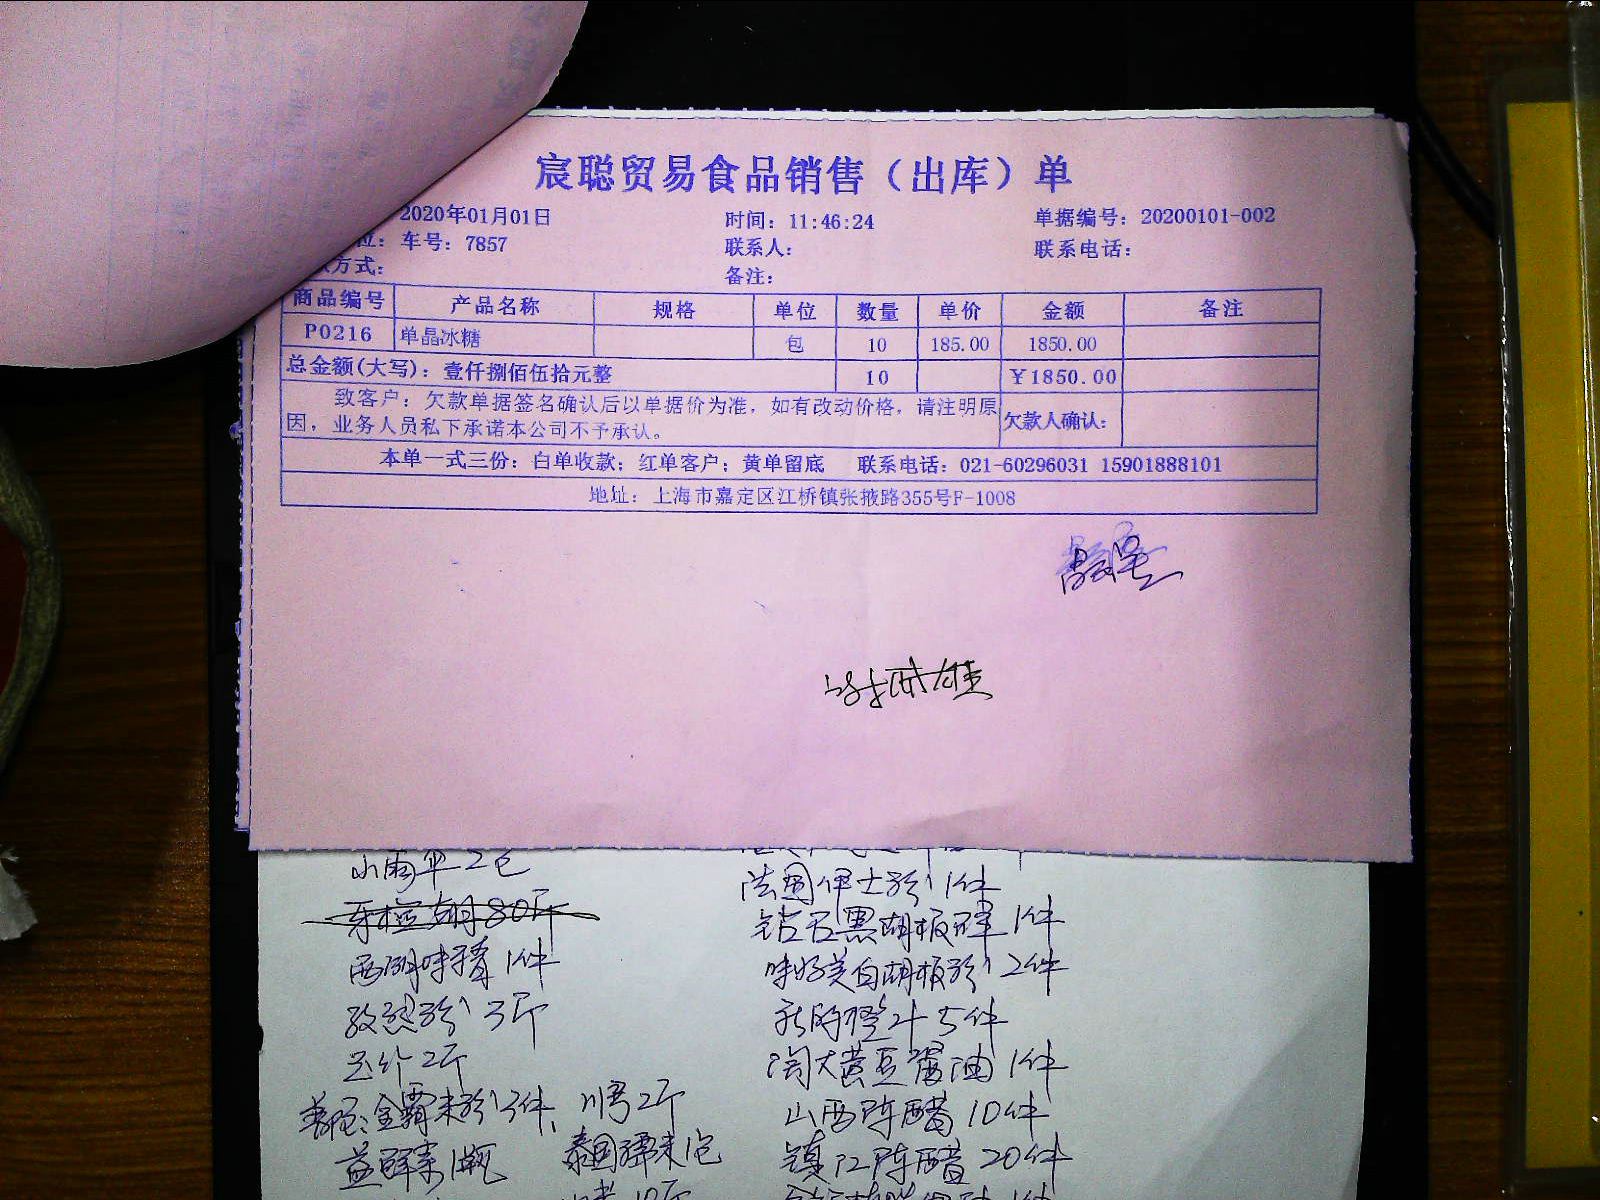 宸聪贸易食品销售（出库）单
2020年01月01日 时间：11:46:24 单据编号：20200101-002
位：车号：7857 联系人： 联系电话：
方式： 备注：
商品编号 产品名称 规格 单位 数量 单价 金额 备注
P0216 单晶冰糖 包 10 185.00 1850.00
总金额(大写)：壹仟捌佰伍拾元整 10 ￥1850.00
致客户：欠款单据签名确认后以单据价为准，如有改动价格，请注明原
因，业务人员私下承诺本公司不予承认。 欠款人确认：
本单一式三份：白单收款；红单客户；黄单留底 联系电话：021-60296031 15901888101
地址：上海市嘉定区江桥镇张掖路355号F-1008
小雨伞2包
80斤
1件
3斤
2斤
金霸米粉3件、川弓2斤
益鲜素1瓶 泰国糯米1包
法国伊士粉1件
钻石黑胡椒碎1件
味好美白胡椒粉2件
新的橙汁5件
淘大黄豆酱油1件
山西陈醋10件
镇江陈醋20件